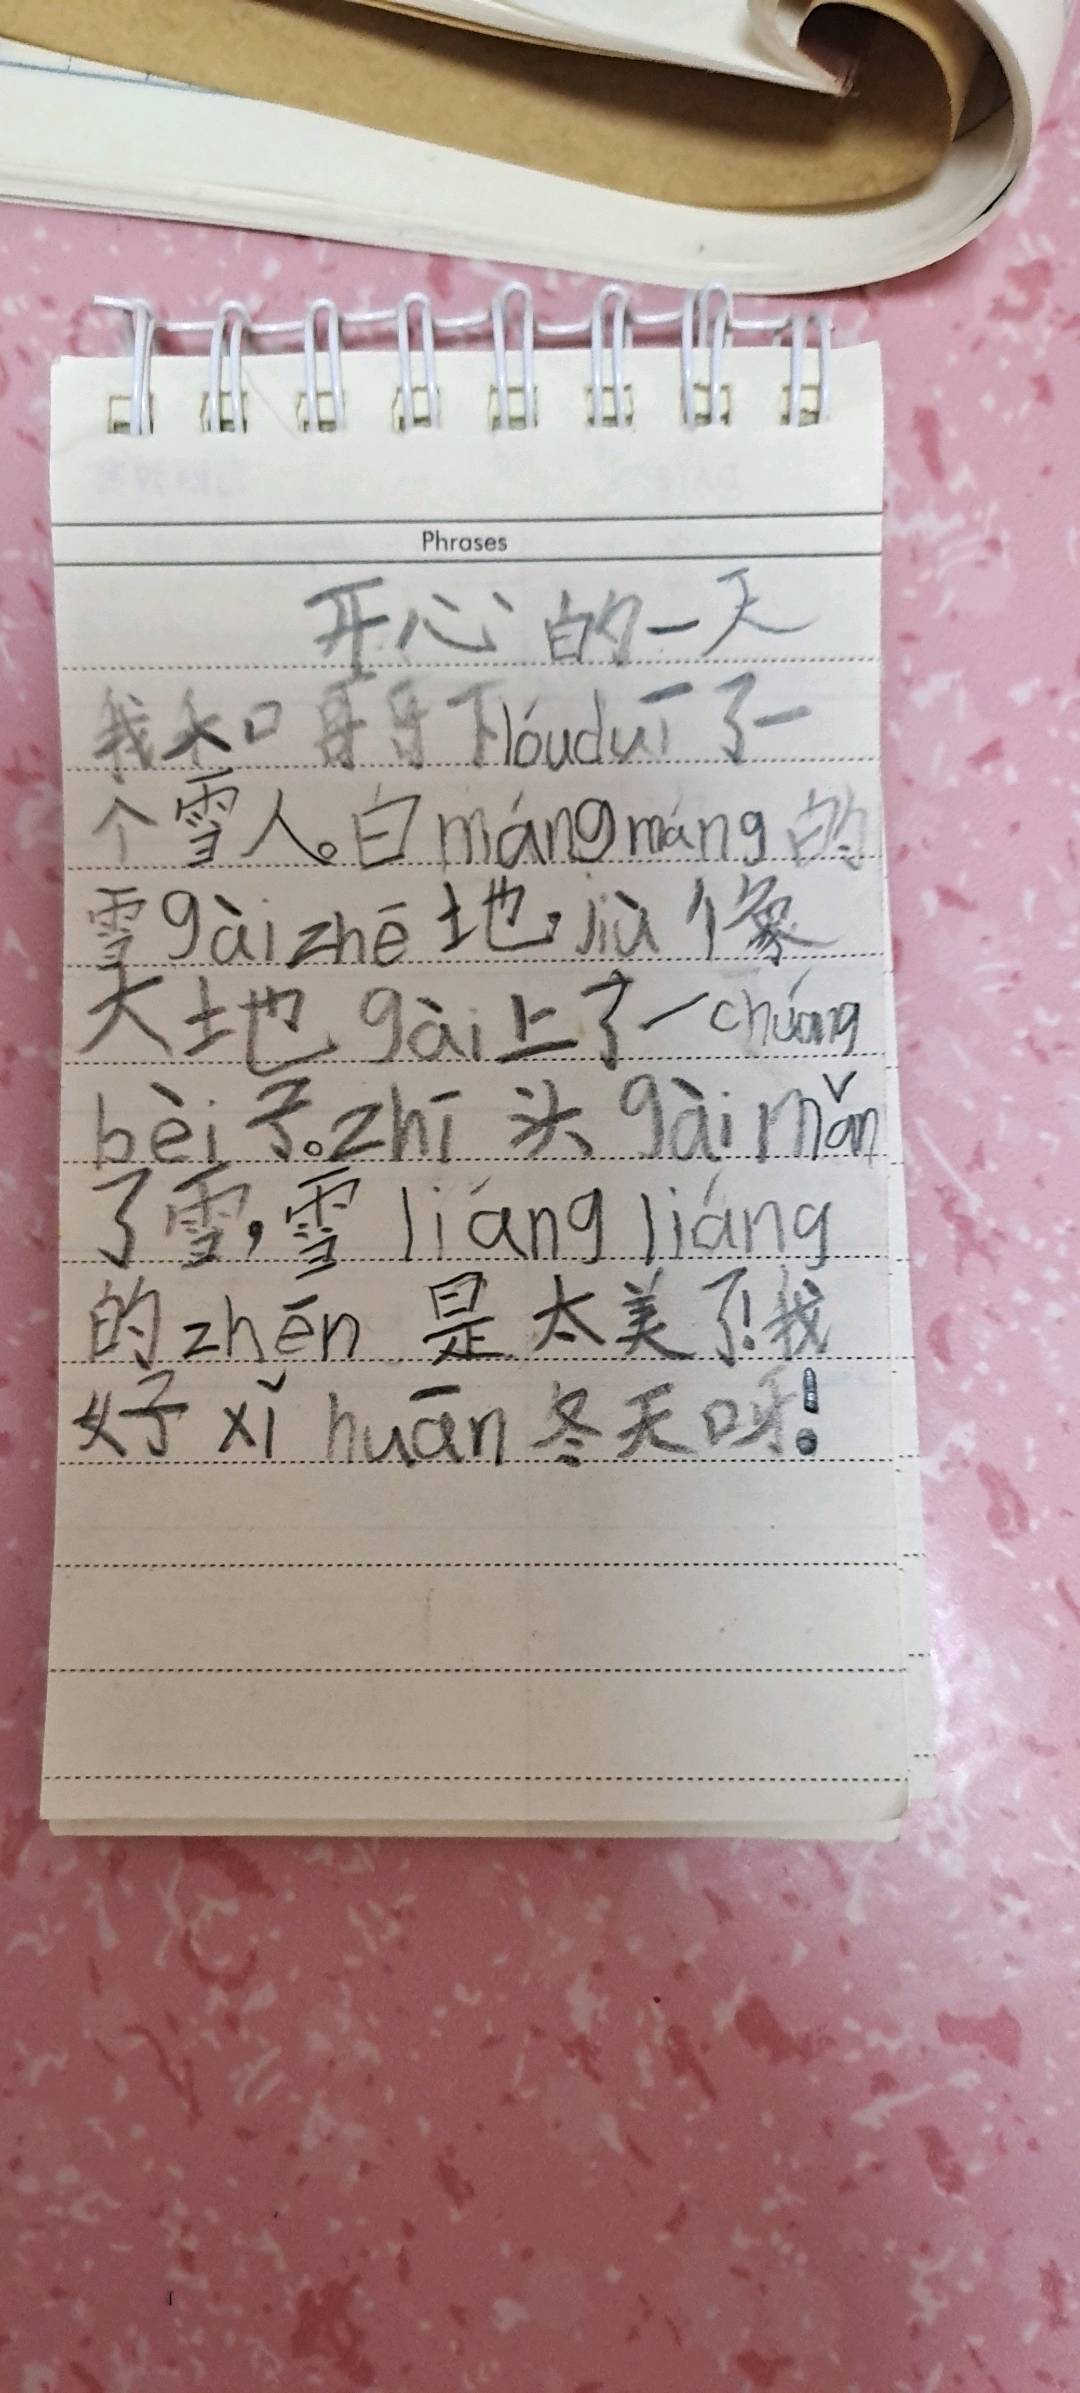 Phrases
开心的一天
我和哥哥下lóuduī了一
个雪人。白mángmáng的
雪gàizhē土地,jiù像
大土地gài上了一chuáng
bèi子。zhī头gàimǎn
了雪,雪liángliáng
的zhēn是太美了!我
好xǐhuān冬天呀!